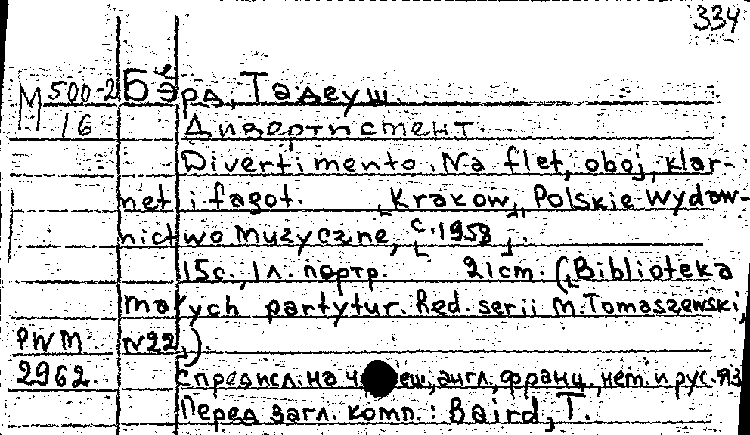 334
М 500-2 Бэрд, Тадеуш.
16 Дивертисмент.
Divertimento. Na flet, oboj, klar-
net i fagot. [Krakow], Polskie Wydaw-
nictwo Muzyczne, [c. 1958].
15 с., 1 л. портр. 21 cm. (Biblioteka
małych partytur. Red. serii M. Tomaszewski,
PWM N 22.)
2962 С предисл. на англ., франц., нем. и рус. яз
Перед загл. комп.: Baird, T.